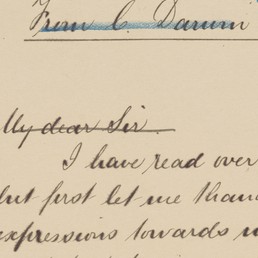 From C. Darwin
My dear Sir.
I have read over
but first let me than
expressions towards